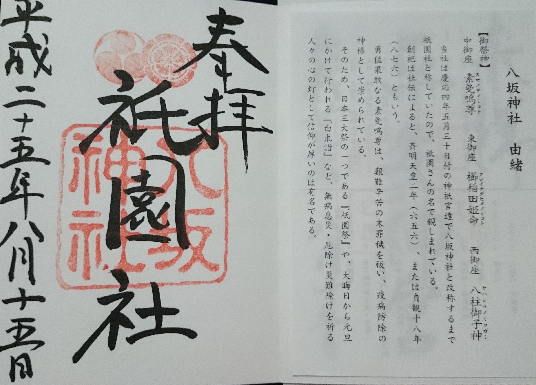 八坂神社　由緒
【御祭神】
中御座　素戔嗚尊　東御座　櫛稲田姫命　西御座　八柱御子神
当社は慶応四年五月三十日付の神祇官達で八坂神社と改称するまで
祇園社と称していたので、祇園さんの名で親しまれている。
創祀は社伝によると、斉明天皇二年（六五六）、または貞観十八年
（八七六）ともいう。
勇猛果敢なる素戔嗚尊は、艱難辛苦の末罪穢を祓い、疫病防除の
神様として崇められている。
そのため、日本三大祭の一つである「祇園祭」や、大晦日から元旦
にかけて行われる「白朮詣」など、無病息災・厄除け災難除けを祈る
人々の心の灯として信仰が厚いのは有名である。
奉拝
祇園社
八坂
神社
平成二十五年八月十五日